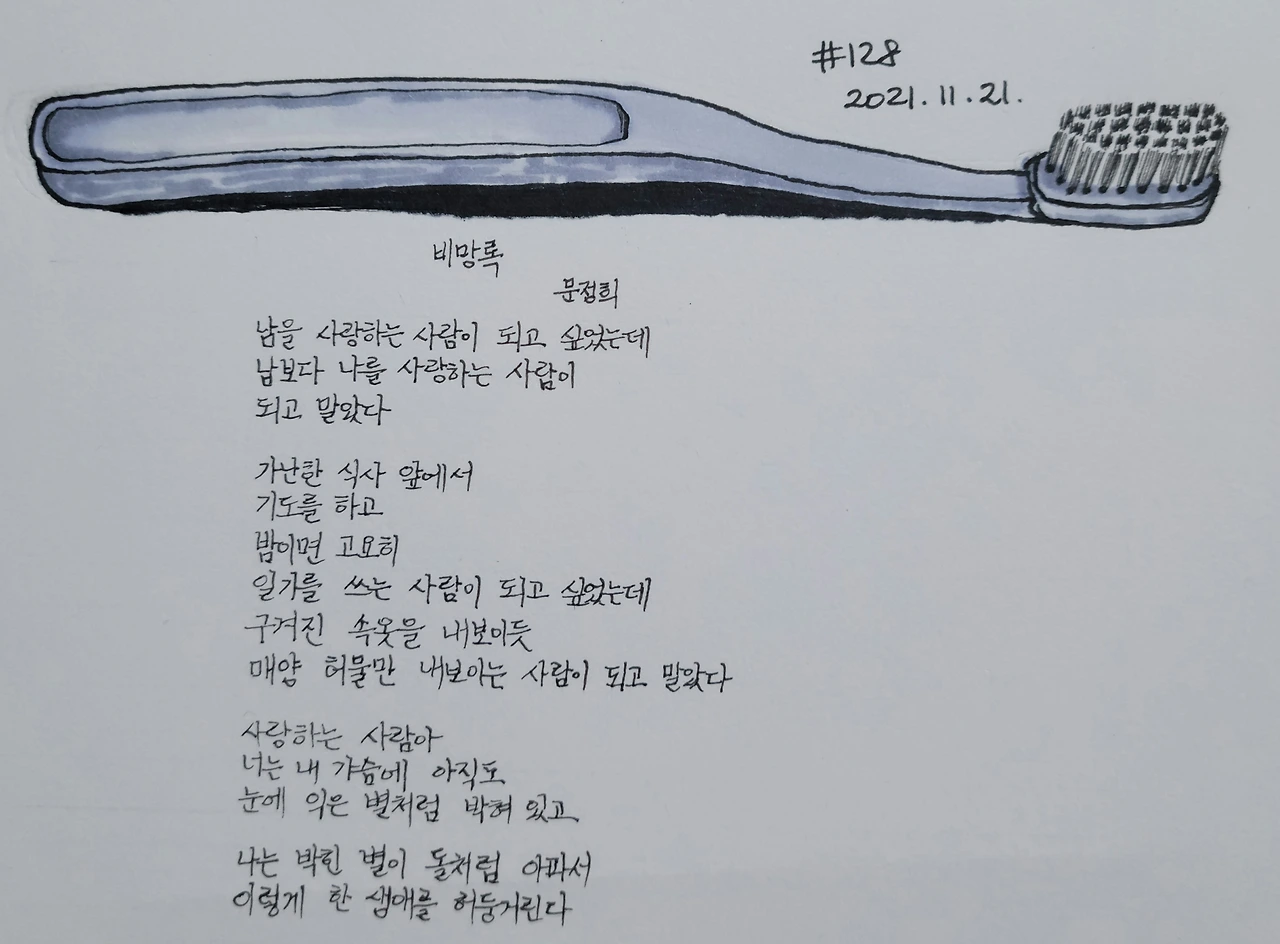 #128
2021.11.21.
비망록
문정희
남을 사랑하는 사람이 되고 싶었는데
남보다 나를 사랑하는 사람이
되고 말았다
가난한 식사 앞에서
기도를 하고
밤이면 고요히
일기를 쓰는 사람이 되고 싶었는데
구겨진 속옷을 내보이듯
매양 허물만 내보이는 사람이 되고 말았다
사랑하는 사람아
너는 내 가슴에 아직도
눈에 익은 별처럼 박혀 있고
나는 박힌 별이 돌처럼 아파서
이렇게 한 생애를 허둥거린다